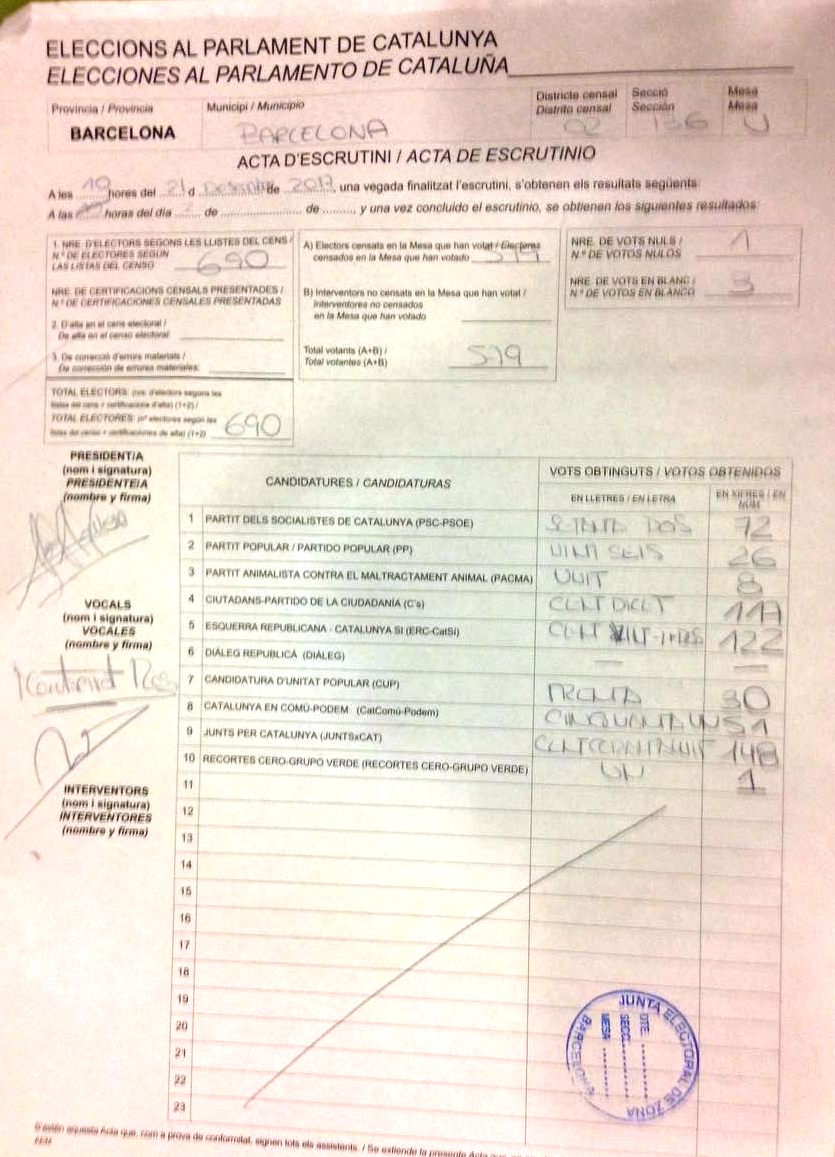 ELECCIONS AL PARLAMENT DE CATALUNYA
ELECCIONES AL PARLAMENTO DE CATALUÑA
Província / Provincia
BARCELONA
Municipi / Municipio
BARCELONA
Districte censal
Distrito censal
02
Secció
Sección
136
Mesa
Mesa
U
ACTA D'ESCRUTINI / ACTA DE ESCRUTINIO
A les 19 hores del 21 d Desembre de 2017, una vegada finalitzat l'escrutini, s'obtenen els resultats següents:
A las horas del día de de , y una vez concluido el escrutinio, se obtienen los siguientes resultados:
1. NRE. D'ELECTORS SEGONS LES LLISTES DEL CENS /
N.º DE ELECTORES SEGÚN
LAS LISTAS DEL CENSO 690
NRE. DE CERTIFICACIONS CENSALS PRESENTADES /
N.º DE CERTIFICACIONES CENSALES PRESENTADAS
2. D'alta en el cens electoral /
De alta en el censo electoral:
3. De correcció d'errors materials /
De corrección de errores materiales:
TOTAL ELECTORS: (nre. d'electors segons les
llistes del cens + certificacions d'alta) (1+2) /
TOTAL ELECTORES: (nº electores según las
listas del censo + certificaciones de alta) (1+2) 690
A) Electors censats en la Mesa que han votat / Electores
censados en la Mesa que han votado 519
B) Interventors no censats en la Mesa que han votat /
Interventores no censados
en la Mesa que han votado
Total votants (A+B) /
Total votantes (A+B) 579
NRE. DE VOTS NULS /
N.º DE VOTOS NULOS 1
NRE. DE VOTS EN BLANC /
N.º DE VOTOS EN BLANCO 3
PRESIDENT/A
(nom i signatura)
PRESIDENTE/A
(nombre y firma)
VOCALS
(nom i signatura)
VOCALES
(nombre y firma)
INTERVENTORS
(nom i signatura)
INTERVENTORES
(nombre y firma)
CANDIDATURES / CANDIDATURAS
VOTS OBTINGUTS / VOTOS OBTENIDOS
EN LLETRES / EN LETRA
EN XIFRES / EN NÚM
1 PARTIT DELS SOCIALISTES DE CATALUNYA (PSC-PSOE) SETANTA DOS 72
2 PARTIT POPULAR / PARTIDO POPULAR (PP) VINT SEIS 26
3 PARTIT ANIMALISTA CONTRA EL MALTRACTAMENT ANIMAL (PACMA) VUIT 8
4 CIUTADANS-PARTIDO DE LA CIUDADANÍA (C's) 117
5 ESQUERRA REPUBLICANA - CATALUNYA SÍ (ERC-CatSí) CENT VINT-I-DOS 122
6 DIÀLEG REPUBLICÀ (DIÀLEG) — —
7 CANDIDATURA D'UNITAT POPULAR (CUP) TRENTA 30
8 CATALUNYA EN COMÚ-PODEM (CatComú-Podem) CINQUANTA UN 51
9 JUNTS PER CATALUNYA (JUNTSxCAT) 148
10 RECORTES CERO-GRUPO VERDE (RECORTES CERO-GRUPO VERDE) UN 1
11
12
13
14
15
16
17
18
19
20
21
22
23
JUNTA ELECTORAL DE ZONA
BARCELONA
DTE.
SECC.
MESA
S'estén aquesta Acta que, com a prova de conformitat, signen tots els assistents. / Se extiende la presente Acta que,